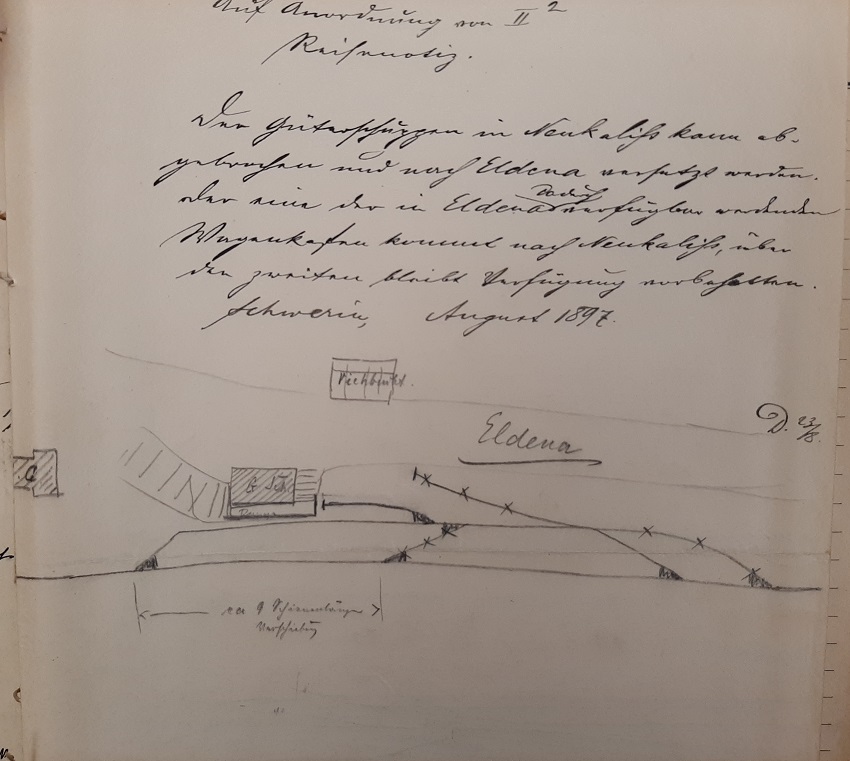 Auf Anordnung von II 2
Reisenotiz.
Der Güterschuppen in Neukaliß kann ab-
gebrochen und nach Eldena versetzt werden.
Der eine der in Eldena dadurch verfügbar werdenden
Wagenkasten kommt nach Neukaliß, über
den zweiten bleibt Verfügung vorbehalten.
Schwerin, August 1897.
D. 23/8.
Eldena
G Sch.
Rampe
ca 9 Schienenlängen
Verschiebung